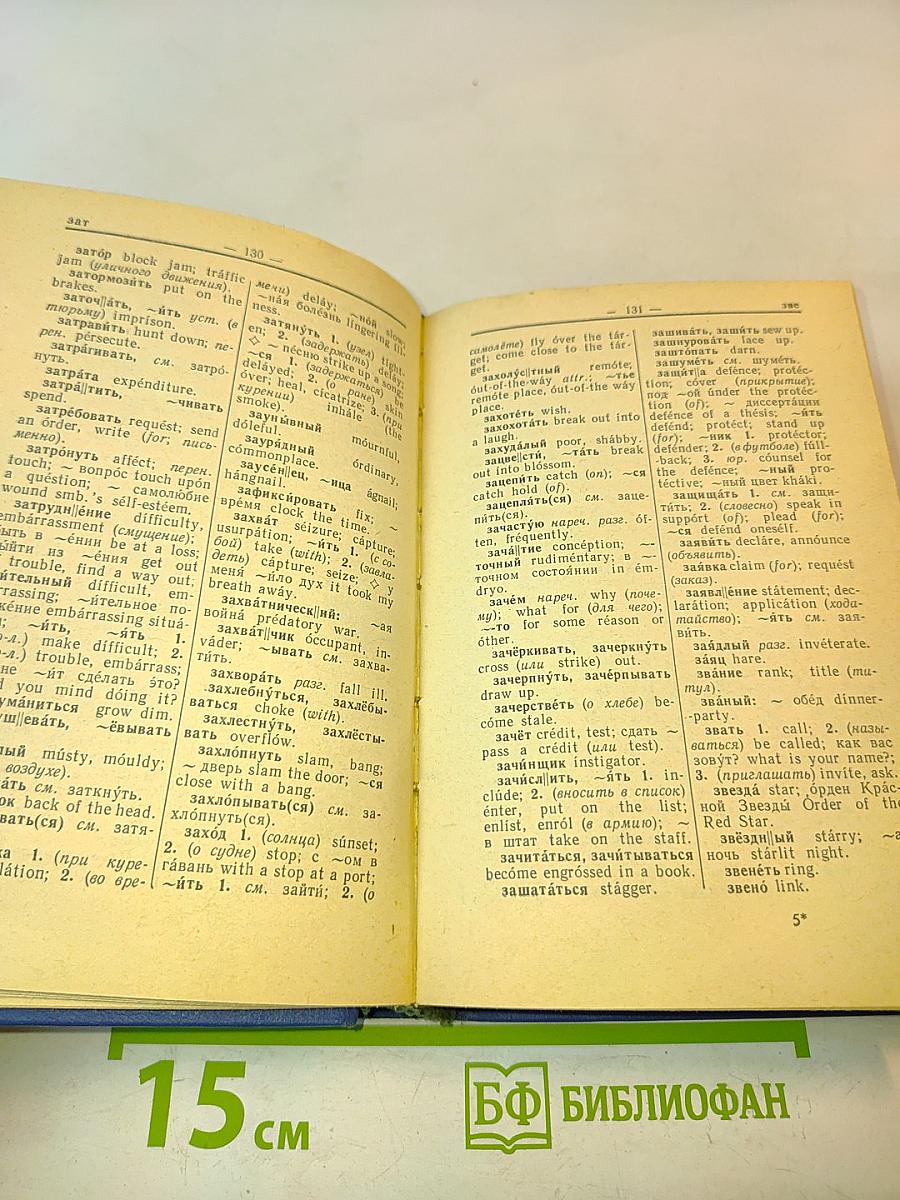 зат
— 130 —
затóр block jam; tráffic
jam (уличного движения).
затормозúть put on the
brakes.
заточ||áть, ~úть уст. (в
тюрьму) impríson.
затравúть hunt down; пе-
рен. pérsecute.
затрáгивать, см. затрó-
нуть.
затрáта expénditure.
затрá||тить, ~чивать
spend.
затрéбовать requést; send
an órder, write (for; пись-
менно).
затрóнуть afféct; перен.
touch; ~ вопрóс touch upón
a quéstion; ~ самолюбие
wound smb.'s sélf-estéem.
затрудн||éние difficulty,
embárrassment (смущение);
быть в ~éнии be at a loss;
вы́йти из ~éния get out
trouble, find a way out;
úтельный difficult, em-
rrassing; ~úтельное по-
жéние embárrassing situá-
; ~úть, ~я́ть 1.
о-л.) make difficult; 2.
-л.) trouble, embárrass;
не ~úт сдéлать э́то?
d you mind dóing it?
умáниться grow dim.
уш||евáть, ~ёвывать
лый músty, móuldy;
воздухе).
áть см. заткнýть.
ок back of the head.
вáть(ся) см. затя-
ка 1. (при куре-
látion; 2. (во вре-
мени) deláy; ~нóй slow;
~нáя болéзнь língering ill-
ness.
затянýть 1. (узел) tíght-
en; 2. (задержать) deláy;
◇ ~ пéсню strike up a song;
~ся 1. (задержаться) be
deláyed; 2. (о ране) skin
óver; heal, cícatrize; 3. (при
курении) inhále (the
smoke).
заунывный móurnful,
dóleful.
зауря́дный órdinary,
cómmonplace.
заусéн||ец, ~ица ágnail,
hángnail.
зафиксúровать fix; ~
врéмя clock the time.
захвáт séizure; cápture;
usurpátion; ~úть 1. (с со-
бой) take (with); 2. (завла-
деть) cápture; seize; ◇ у
меня́ ~úло дух it took my
breath awáy.
захвáтническ||ий: ~ая
войнá prédatory war.
захвáт||чик óccupant, in-
váder; ~ывать см. захва-
тúть.
захворáть разг. fall ill.
захлебнýться, захлёбы-
ваться choke (with).
захлестнýть, захлёсты-
вать overflów.
захлóпнуть slam, bang;
~ дверь slam the door; ~ся
close with a bang.
захлóпывать(ся) см. за-
хлóпнуть(ся).
захóд 1. (солнца) súnset;
2. (о судне) stop; с ~ом в
гáвань with a stop at a port;
~úть 1. см. зайтú; 2. (о
— 131 —
зве
самолёте) fly óver the tár-
get; come close to the tár-
get.
захолýс||тный remóte;
óut-of-the-way attr.; ~тье
remóte place, óut-of-the wáy
place.
захотéть wish.
захохотáть break out into
a laugh.
захудáлый poor, shábby.
зацве||стú, ~тáть break
out into blóssom.
зацепúть catch (on); ~ся
catch hold (of).
зацепля́ть(ся) см. заце-
пúть(ся).
зачастýю нареч. разг. óf-
ten, fréquently.
зачá||тие concéption; ~-
точный rudiméntary; в ~-
точном состоянии in ém-
bryo.
зачéм нареч. why (поче-
му); what for (для чего);
~-то for some réason or
óther.
зачёркивать, зачеркнýть
cross (или strike) out.
зачерпнýть, зачéрпывать
draw up.
зачерствéть (о хлебе) be-
cóme stale.
зачёт crédit, test; сдать ~
pass a crédit (или test).
зачúнщик ínstigator.
зачúсл||ить, ~я́ть 1. in-
clúde; 2. (вносить в список)
énter, put on the list;
enlíst, enról (в армию); ~
в штат take on the staff.
зачитáться, зачúтываться
becóme engróssed in a book.
зашатáться stágger.
зашивáть, зашúть sew up.
зашнуровáть lace up.
заштóпать darn.
зашумéть см. шумéть.
защúт||а defénce; protéc-
tion; cóver (прикрытие);
под ~ой únder the protéc-
tion (of); ~ диссертáции
defénce of a thésis; ~úть
defénd; protéct; stand up
(for); ~ник 1. protéctor;
defénder; 2. (в футболе) fúll-
-back; 3. юр. cóunsel for
the defénce; ~ный pro-
téctive; ~ный цвет kháki.
защищáть 1. см. защи-
тúть; 2. (словесно) speak in
suppórt (of); plead (for);
~ся defénd onesélf.
заявúть decláre, annóunce
(объявить).
зая́вка claim (for); requést
(заказ).
заявл||éние státement; dec-
larátion; applicátion (хода-
тайство); ~я́ть см. зая-
вúть.
зая́длый разг. invéterate.
зáяц hare.
звáние rank; title (ти-
тул).
звáный: ~ обéд dínner-
-party.
звать 1. call; 2. (назы-
ваться) be called; как вас
зовýт? what is your name?;
3. (приглашать) invíte, ask.
звездá star; óрден Крáс-
ной Звезды́ Órder of the
Red Star.
звёздн||ый stárry; ~а
ночь stárlit night.
звенéть ring.
звенó link.
5*
15 см
БФ БИБЛИОФАН